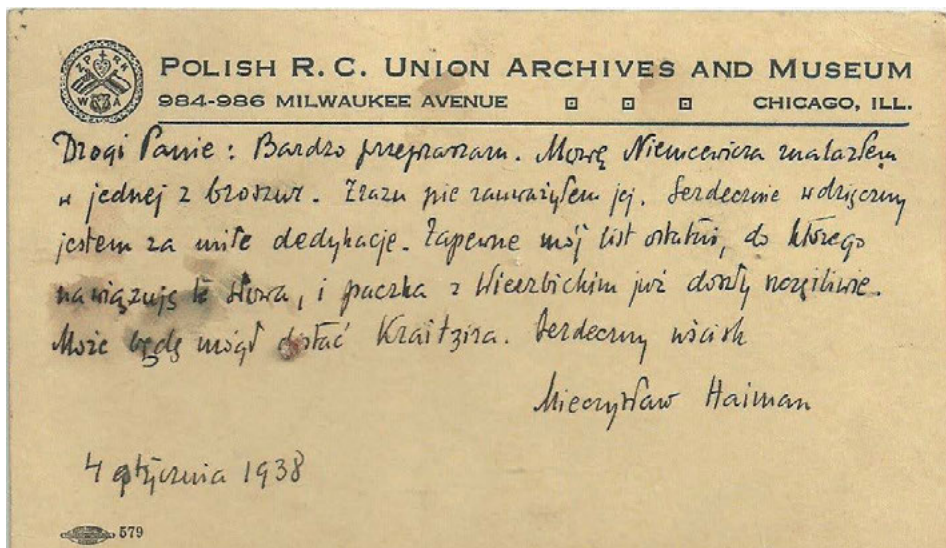 ZPRK
WA
POLISH R. C. UNION ARCHIVES AND MUSEUM
984-986 MILWAUKEE AVENUE CHICAGO, ILL.
Drogi Panie: Bardzo przepraszam. Mowę Niemcewicza znalazłem
w jednej z broszur. Zrazu nie zauważyłem jej. Serdecznie wdzięczny
jestem za miłe dedykacje. Zapewne mój list ostatni, do którego
nawiązują te słowa, i paczka z Wierzbickim już doszły szczęśliwie.
Może będę mógł dostać Kraitzira. Serdeczny uścisk
Mieczysław Haiman
4 stycznia 1938
579